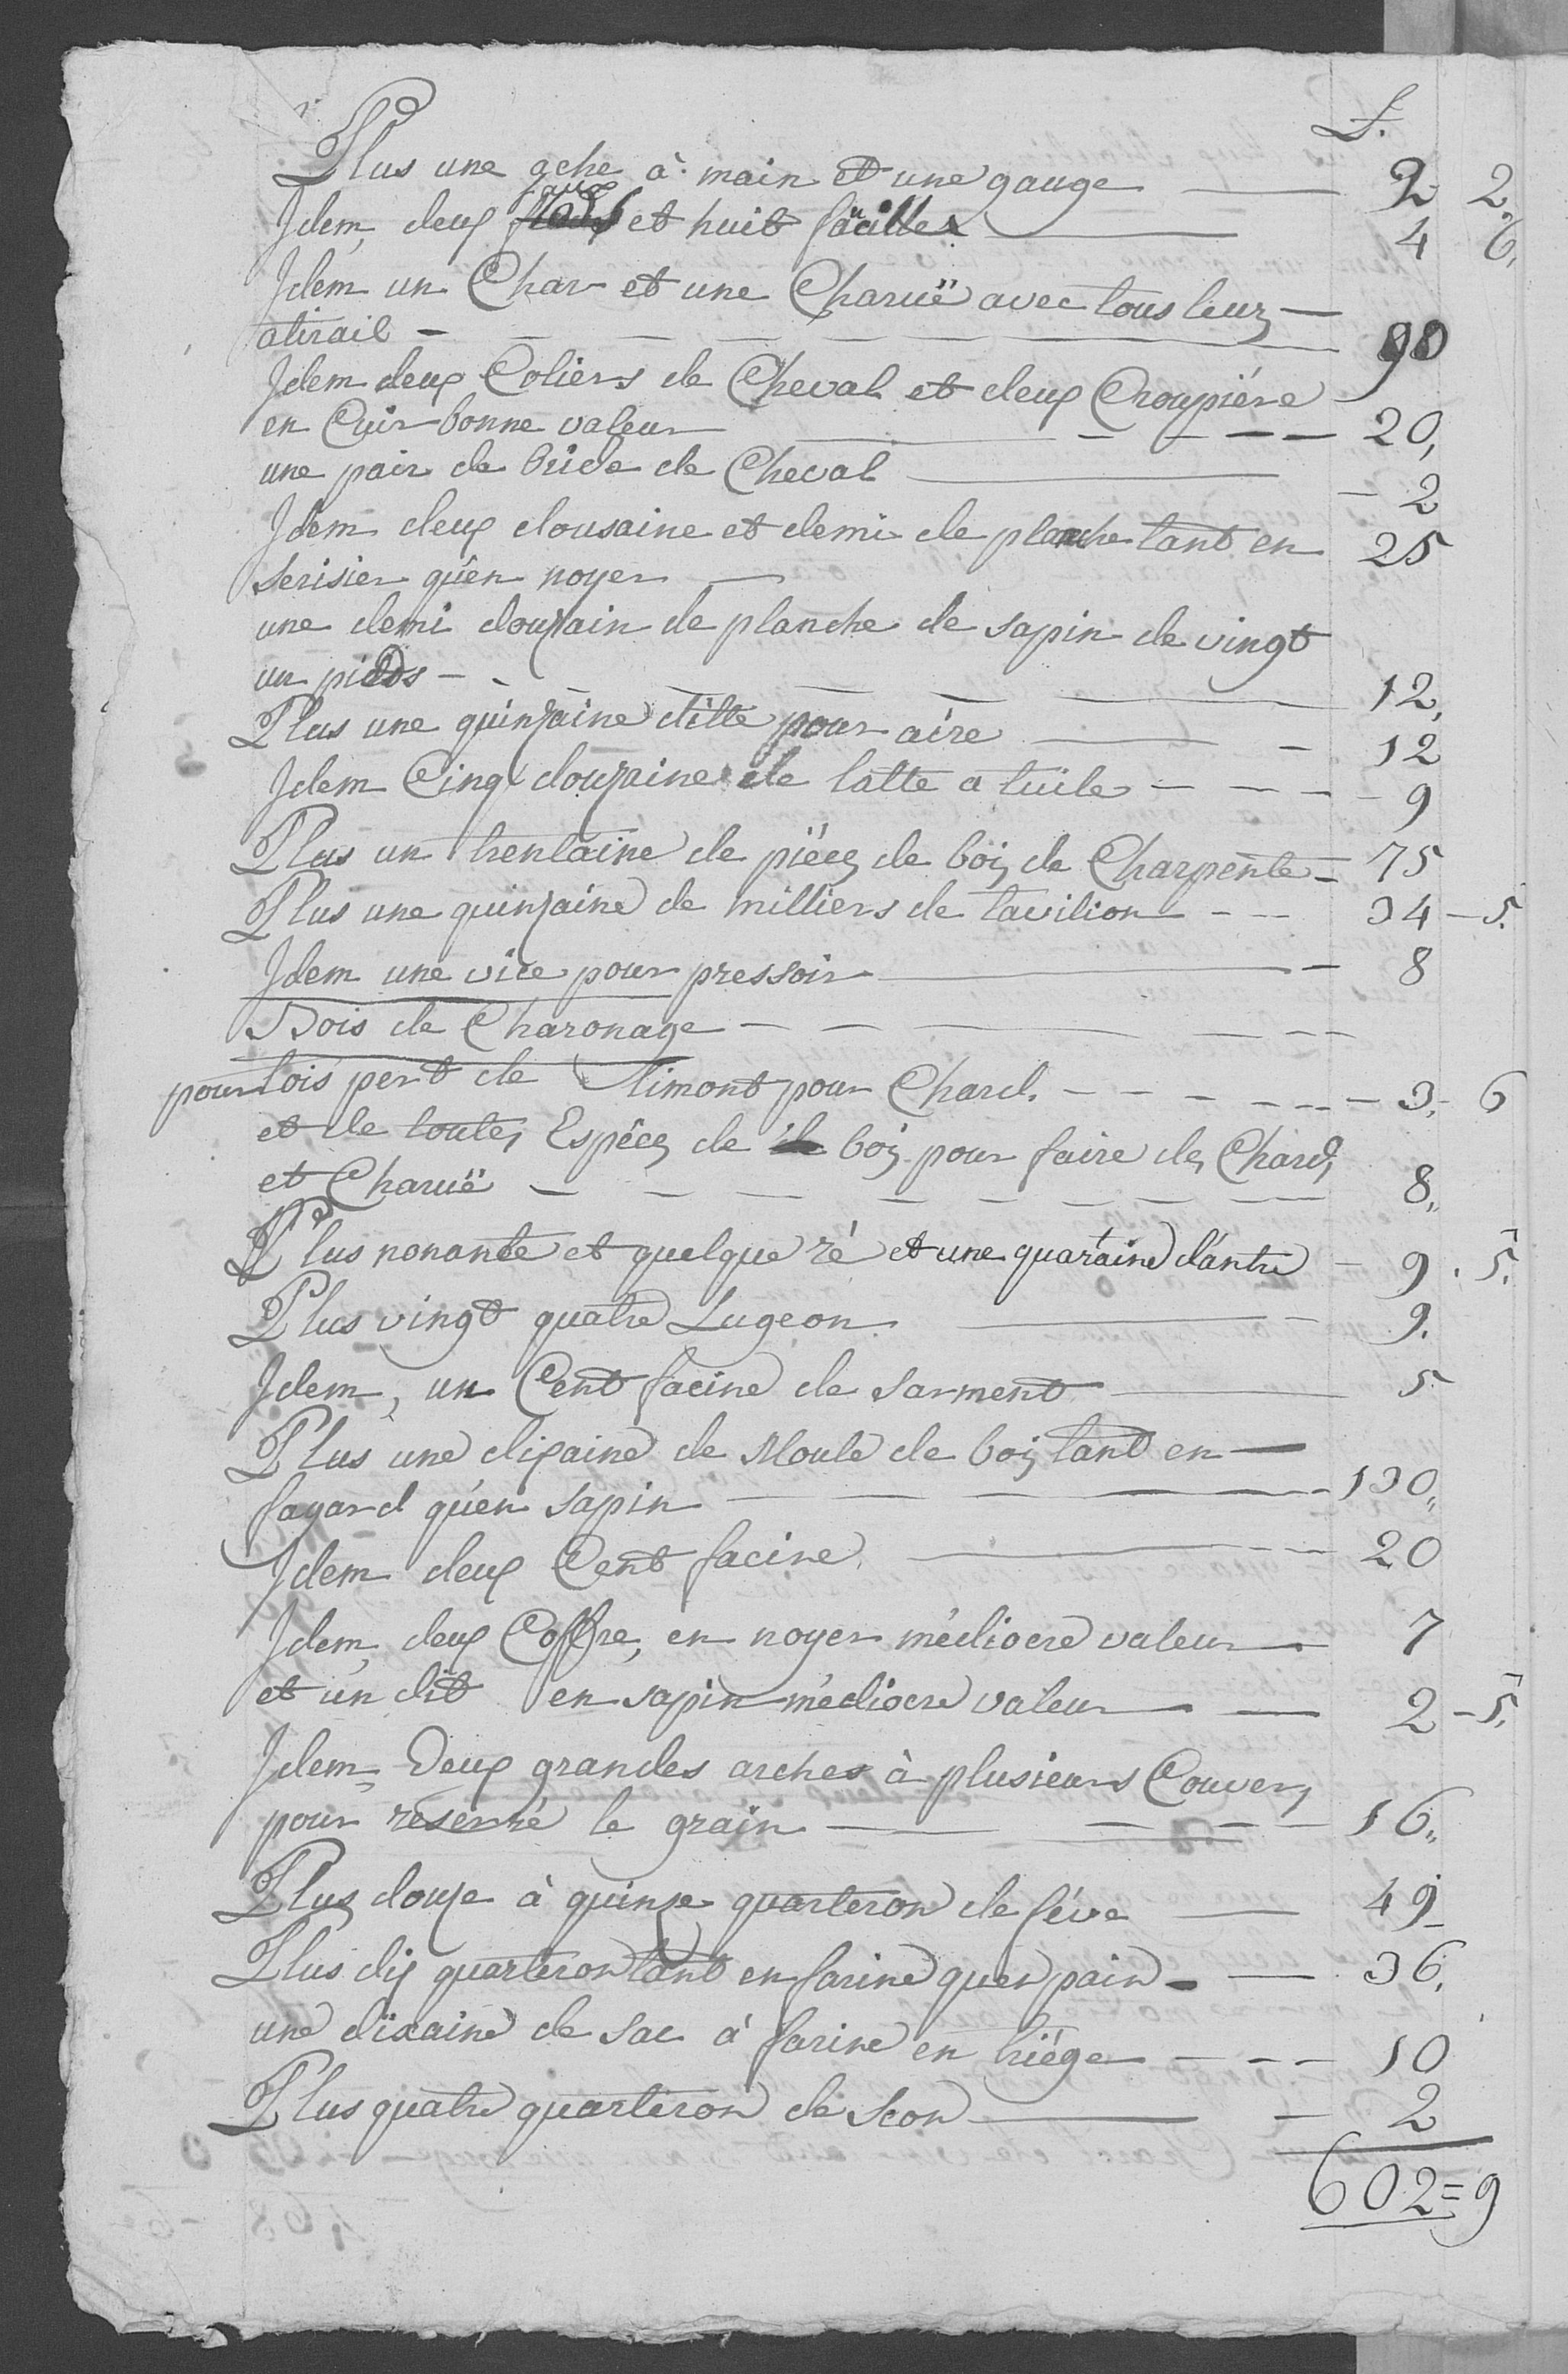 L.
Plus une ache à main et une gauge — 2 2.
Idem, deux faux et huit faüilles — 4 6,
Idem un Char et une Charuë avec tous leurs —
atirail — 90
Idem deux Coliers de Cheval et deux Croupiére
en Cuir bonne valeur — 20,
une pair de bride de Cheval — 2
Idem deux dousaine et demi de planche tant en 25
serisier qu'en noyer —
une demi douzain de planche de sapin de vingt
un pieds — 12,
Plus une quinzaine ditte pour aire — 12
Idem Cinq douzaine de latte a tuile — 9
Plus un trentaine de piéces de bois de Charpente — 75
Plus une quinzaine de milliers de tavilion — 34 — 5.
Idem une vice pour pressoir — 8
Bois de Charonage —
pour lois pert de Limont pour Chard. — 3. 6
et de toutes Espéces de bois pour faire des Chards
et Charuë — 8,,
Plus nonante et quelque ré et une quaraine d'antre — 9. 5.
Plus vingt quatre Lugeon — 9.
Idem, un Cent facine de sarment — 5
Plus une dixaine de Moule de bois tant en —
fayard qu'en sapin — 130,,
Idem deux Cent facine — 20
Idem, deux Coffre, en noyer médiocre valeur — 7
et un dit en sapin médiocre valeur — 2 — 5.
Idem, Deux grandes arches à plusieurs Couvers
pour reserré le grain — 16,,
Plus douze à quinze quarteron de féve — 49
Plus dix quarteron tant en farine quen pain — 36,
une dixaine de sac à farine en triége — 10
Plus quatre quarteron de Scon — 2
602 = 9